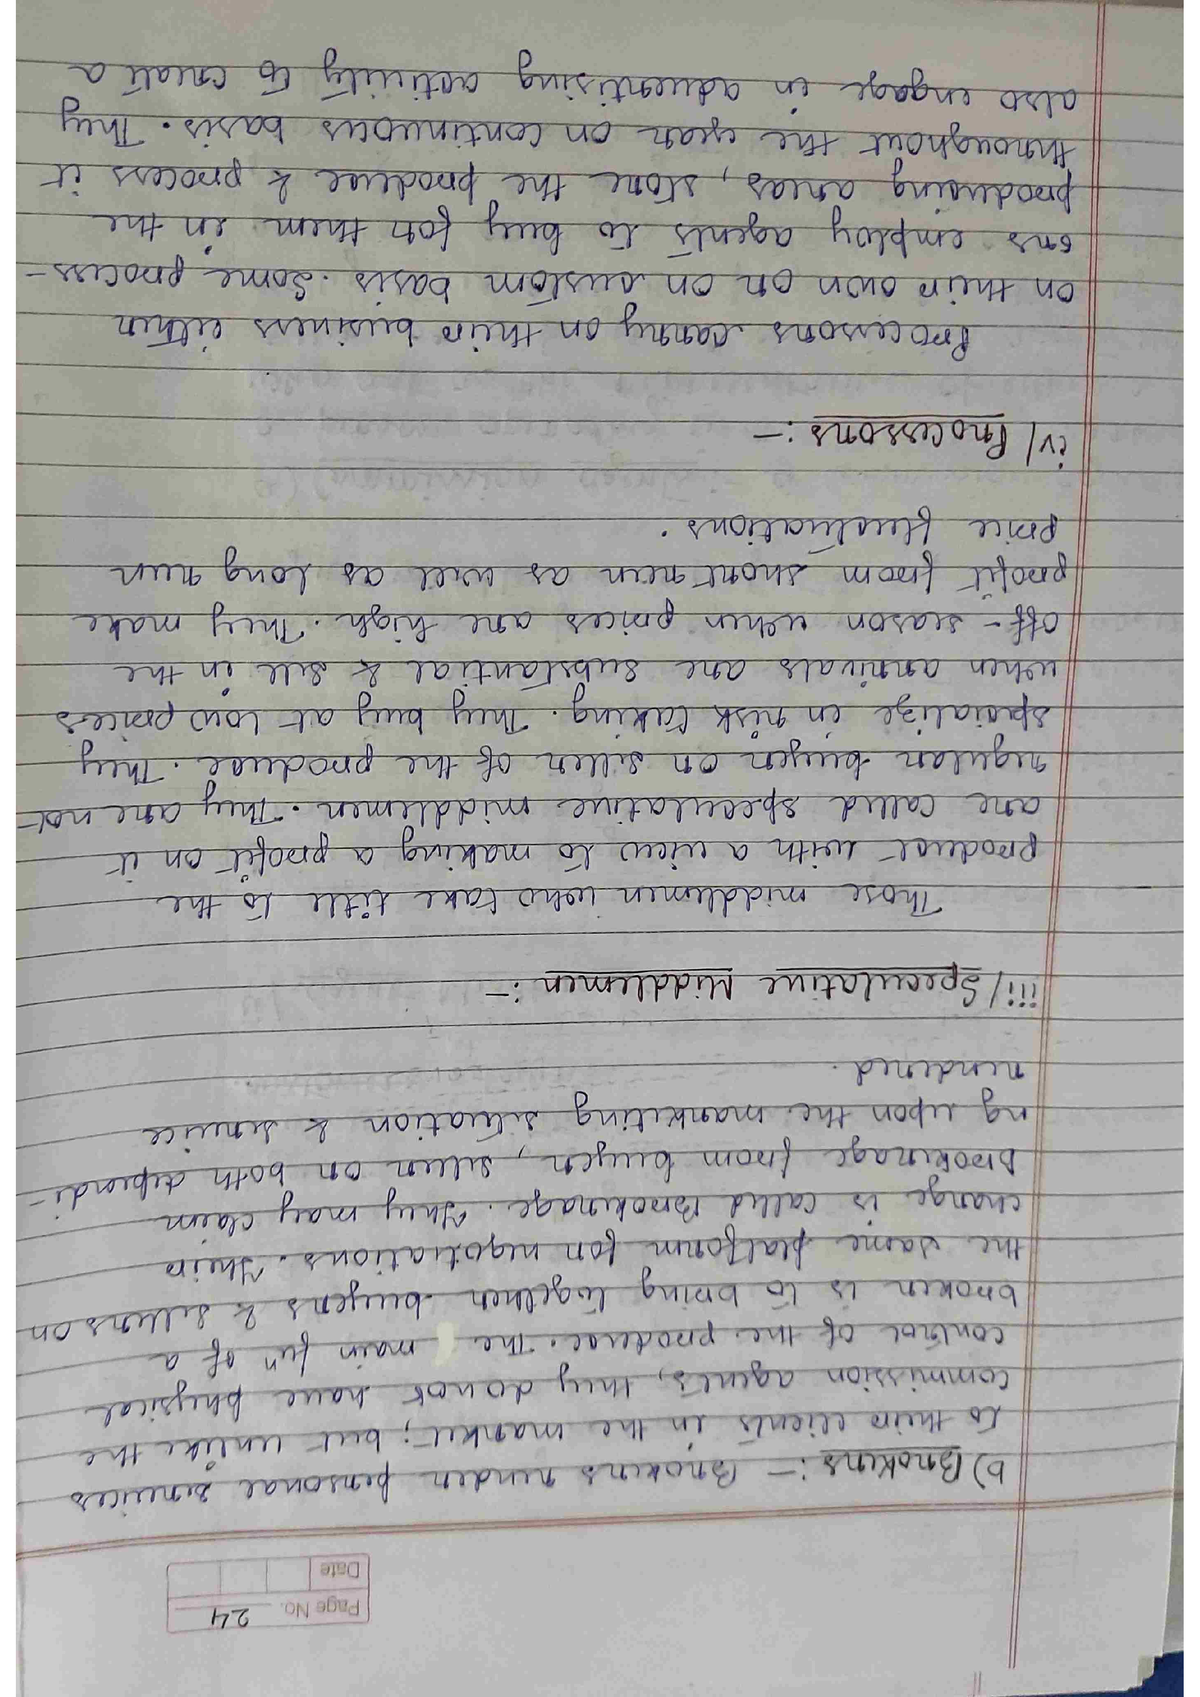 Page No. 24
Date
b) Brokers :- Brokers render personal services
to their clients in the market; but unlike the
commission agents, they do not have physical
control of the produce. The main fun of a
broker is to bring together buyers & sellers on
the same platform for negotiations. Their
charge is called Brokerage. They may claim
brokerage from buyer, seller or both dependi-
ng upon the marketing situation & service
rendered.
iii/ Speculative Middlemen :-
Those middlemen who take title to the
product with a view to making a profit on it
are called speculative middlemen. They are not
regular buyer or seller of the produce. They
specialize in risk taking. They buy at low prices
when arrivals are substantial & sell in the
off-season when prices are high. They make
profit from short run as well as long run
price fluctuations.
iv/ Processors :-
Processors carry on their business either
on their own or on custom basis. Some process-
ors employ agents to buy for them in the
producing areas, store the produce & process it
throughout the year on continuous basis. They
also engage in advertising activity to create a